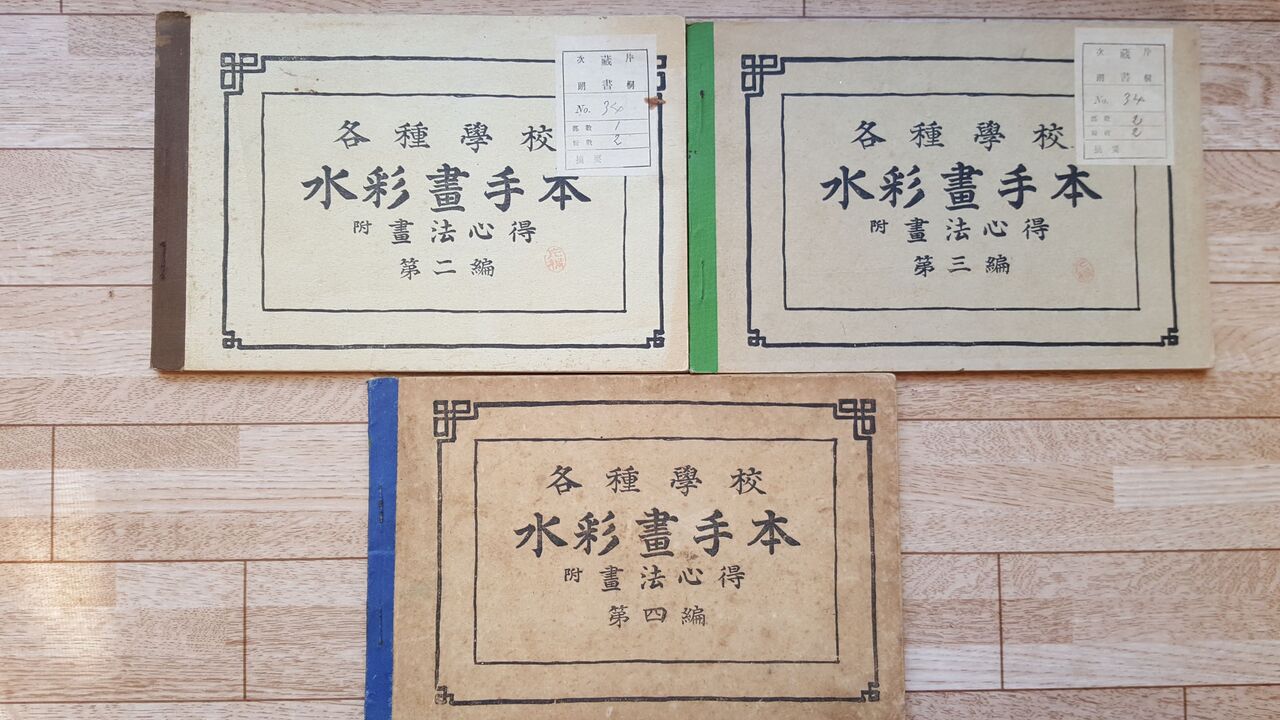 各種學校
水彩畫手本
附 畫法心得
第二編
片
藏
次
樹
書
朗
No. 34
部数 1
冊数 2
摘要
各種學校
水彩畫手本
附 畫法心得
第三編
片
藏
次
樹
書
朗
No. 34
部数 2
冊数 2
摘要
各種學校
水彩畫手本
附 畫法心得
第四編